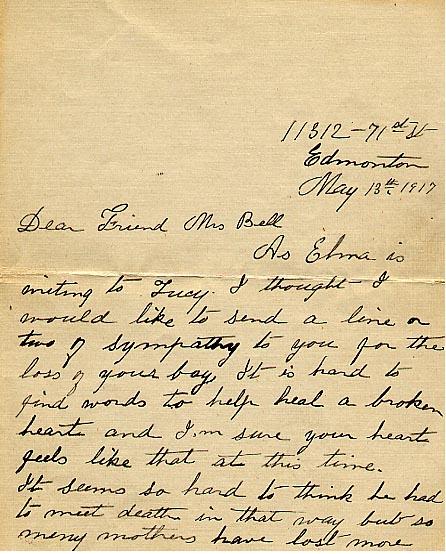 11312-71st St
Edmonton
May 13th 1917
Dear Friend Mrs Bell
As Elma is
writing to Lucy. I thought I
would like to send a line or
two of sympathy to you for the
loss of your boy, It is hard to
find words to help heal a broken
heart and I,m sure your heart
feels like that at this time.
It seems so hard to think he had
to meet death in that way but so
meny mothers have lost more